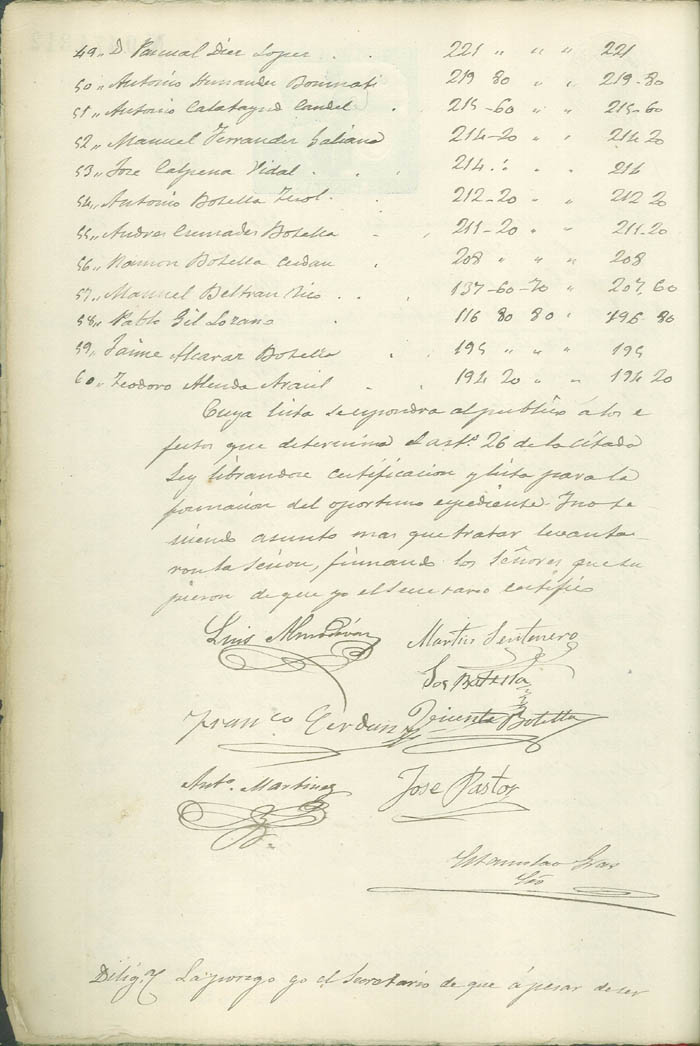 49,, D. Pascual Diez Lopez . . 221 ,, ,, ,, 221
50,, Antonio Hernandez Bonmati 219 80 ,, ,, 219-80
51,, Antonio Calatayud Candel . 215-60 ,, ,, 215-60
52,, Manuel Ferrander Galiano 214-20 ,, ,, 214 20
53,, Jose Calpena Vidal . . . 214 ,, ,, ,, 214
54,, Antonio Botella Terol . . 212-20 ,, ,, 212 20
55,, Andres Cumades Botella - , 211-20 ,, ,, 211-20
56,, Ramon Botella Cerdan . 208 ,, ,, ,, 208
57,, Manuel Beltran Rico . . . 137-60-70 ,, 207,60
58,, Pablo Gil Lozano . . 116 80 80 ,, 196-80
59,, Jaime Alcaraz Botella . 195 ,, ,, ,, 195
60,, Teodoro Alenda - . 194 20 ,, ,, 194 20
Cuya lista se espondra al publico a los e
fectos que determina el artº. 26 de la citada
Ley librandose certificacion y lista para la
formacion del oportuno espediente. Y no te
niendo asunto mas que tratar levanta-
ron la sesion, firmando los Señores que su
pieron de que yo el Secretario certifico
Luis Almodóvar Martin Sentenero
Jose Botella
Franco Cerdan Vicente Botella
Antº. Martinez Jose Pastor
Estanislao Gras
Srio
Diligª. La pongo yo el Secretario de que á pesar de ser